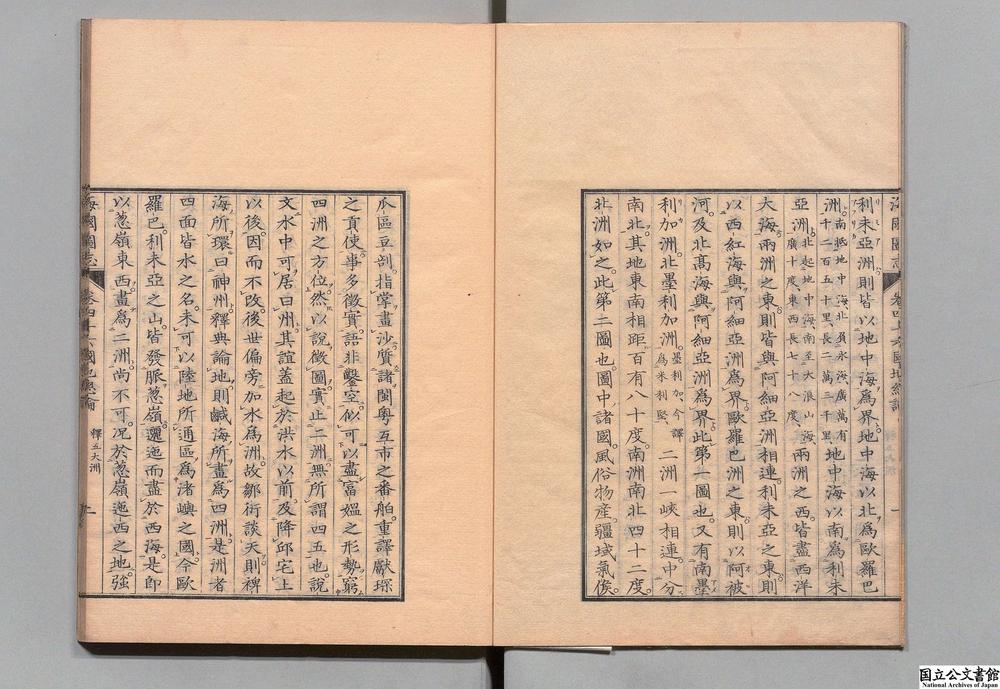 利未亞洲則皆以地中海爲界。地中海以北爲歐羅巴
洲。南抵地中海北負氷海廣萬有
千二百五十里長二萬三千里
地中海以南爲利未
亞洲。北起地中海南至大浪山海
廣十度東西長七十八度
兩洲之西皆盡西洋
大海。兩洲之東則皆與阿細亞洲相連。利未亞之東則
以西紅海與阿細亞洲爲界。歐羅巴洲之東則以阿被
河及北高海與阿細亞洲爲界。此第一圖也。又有南墨
利加洲。北墨利加洲。墨利加今譯
爲米利堅
二洲一峽相連。中分
南北。其地東南相距百有八十度。南洲南北四十二度。
北洲如之。此第二圖也。圖中諸國。風俗物產疆域氣候。
瓜區豆剖。指掌畫沙。質諸閩粤互市之番舶。重譯獻琛
之貢使。事多徵實。語非鑿空。似可以盡富媼之形勢。窮
四洲之方位。然以說徵圖。實止二洲。無所謂四五也。說
文水中可居曰洲。其誼蓋起於洪水以前。及降邱宅土
以後。因而不改。後世偏旁加水爲洲。故鄒衍談天則裨
海所環曰神州。釋典論地則鹹海所畫爲四洲。是洲者
四面皆水之名。未可以陸地所通區爲渚嶼之國。今歐
羅巴。利未亞之山。皆發脈葱嶺。邐迤而盡於西海。是即
以葱嶺東西畫爲二洲。尚不可。况於葱嶺迤西之地。强
海國圖志
釋五大洲
国立公文書館
National Archives of Japan